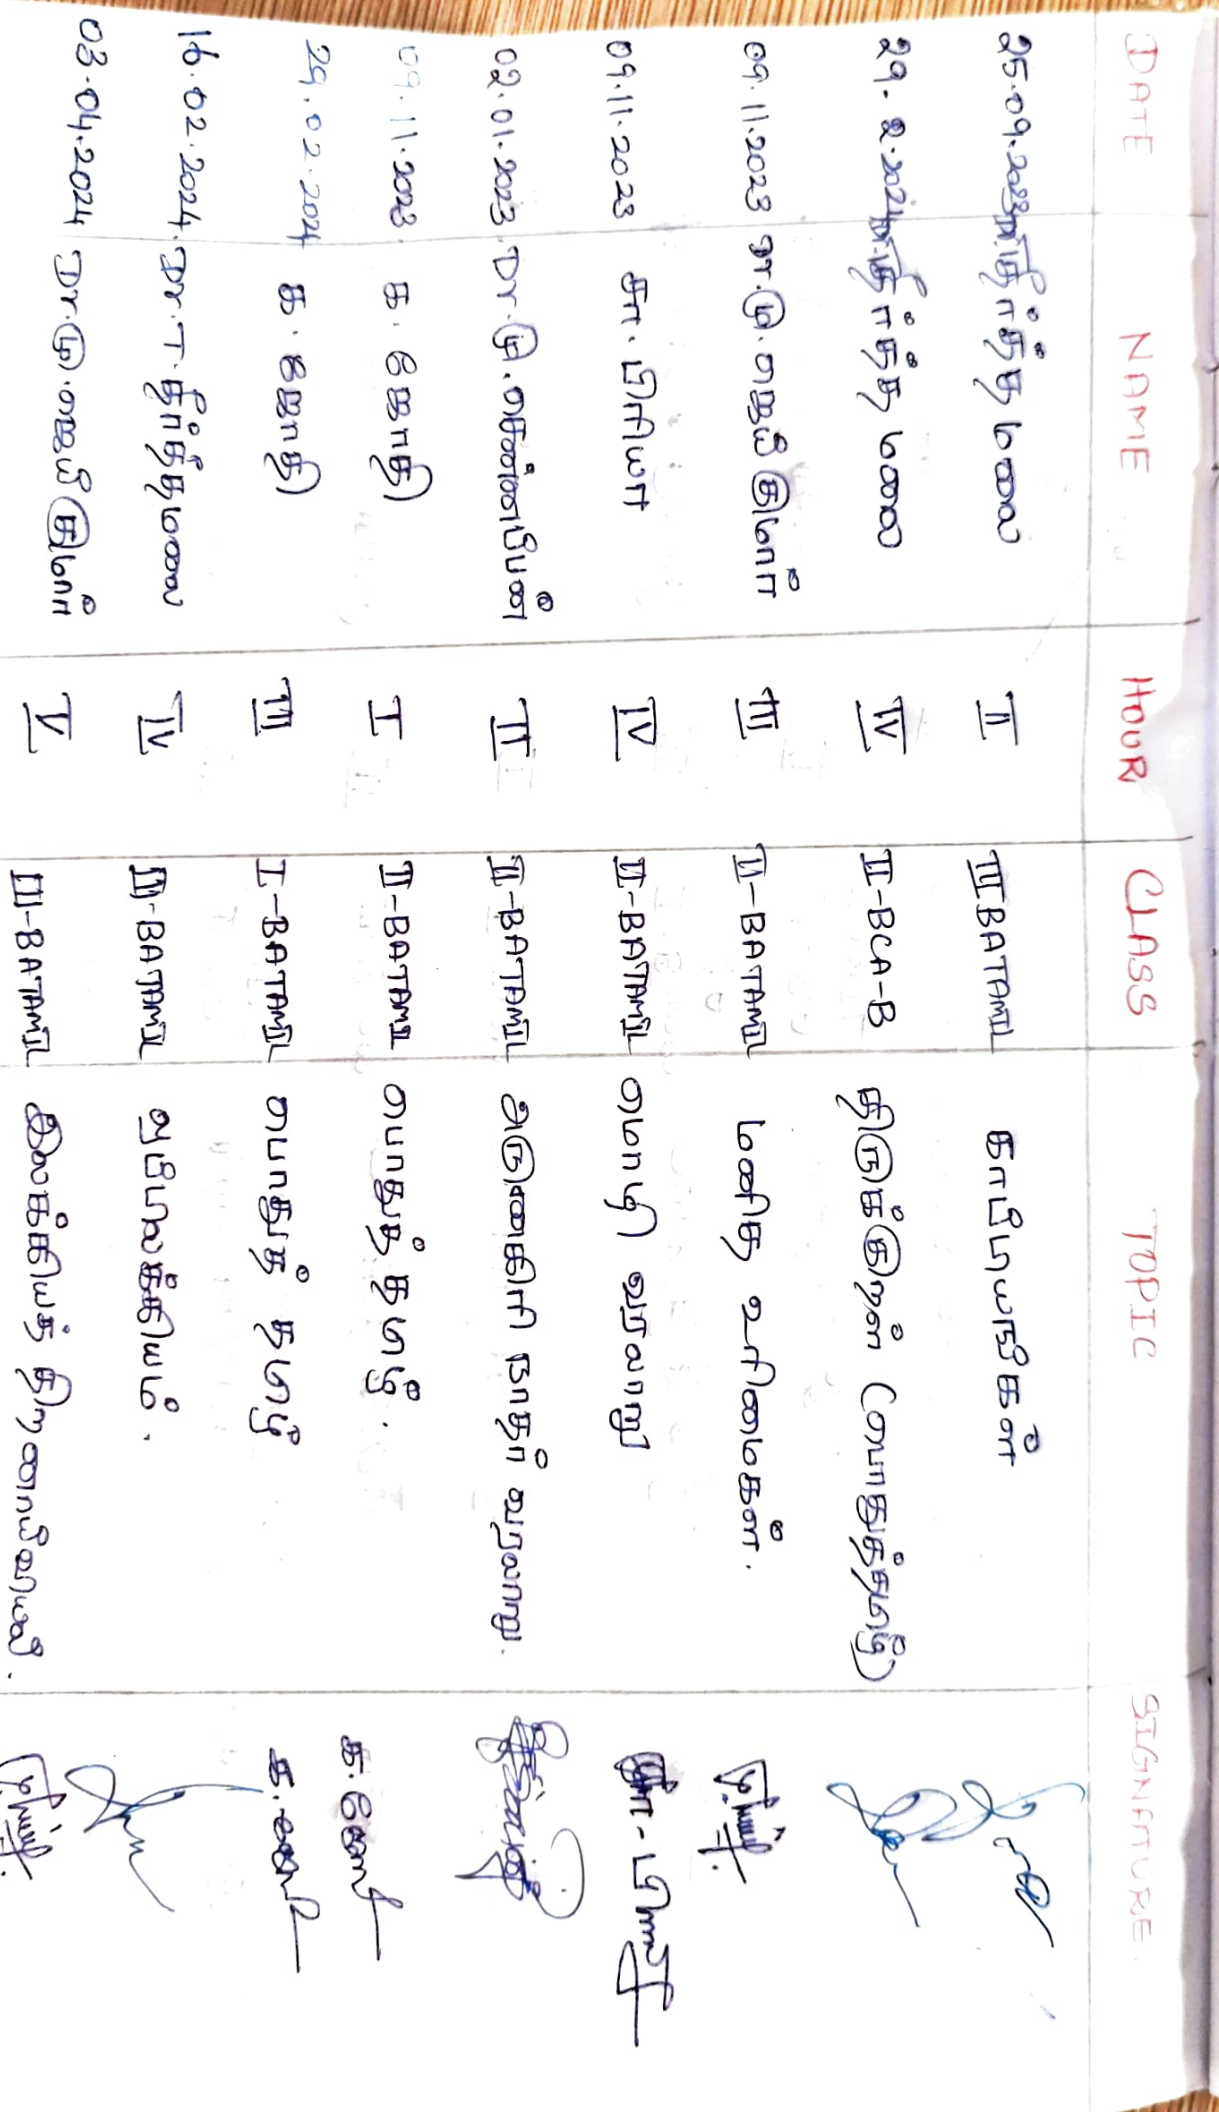 DATE NAME HOUR CLASS TOPIC SIGNATURE
25.09.2023 தீர்த்தமலை II III BATAMIL காப்பியங்கள்
29.2.2024 தீர்த்தமலை IV II-BCA-B திருக்குறள் (பொதுத்தமிழ்)
09.11.2023 Dr.மு.ஜெயகுமார் III II-BATAMIL மனித உரிமைகள்.
09.11.2023 சுா.பிரியா IV II-BATAMIL மொழி வரலாறு
02.01.2023 Dr.மு.சென்னப்பன் II II-BATAMIL அருணகிரி நாதர் வரலாறு.
09.11.2023 க.ஜோதி I II-BATAMIL பொதுத் தமிழ்.
29.02.2024 க.ஜோதி III I-BATAMIL பொதுத் தமிழ்
16.02.2024 Dr.T.தீர்த்தமலை IV III-BATAMIL ஒப்பிலக்கியம்.
03.04.2024 Dr.மு.ஜெயகுமார் V III-BATAMIL இலக்கியத் திறனாய்வியல்.